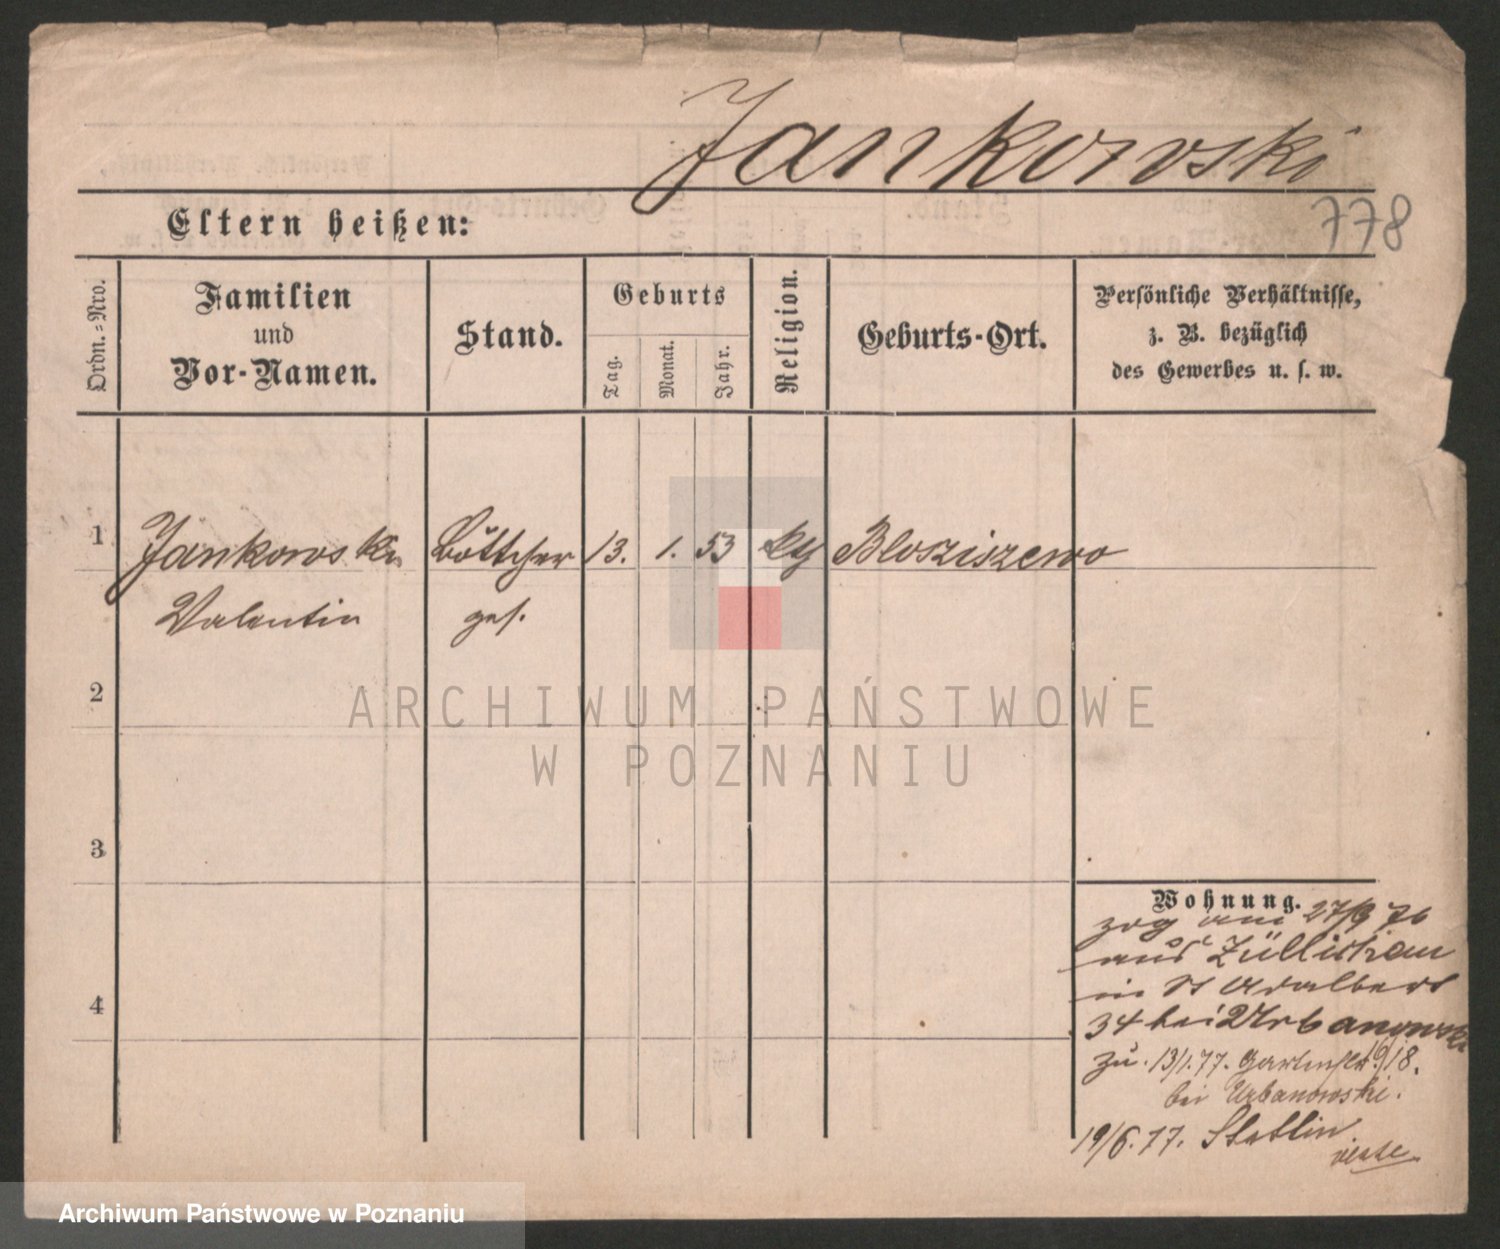 Jankowski
778
Eltern heißen:
Ordn.=Nro.
Familien
und
Vor-Namen.
Stand.
Geburts
Tag.
Monat.
Jahr.
Religion.
Geburts-Ort.
Persönliche Verhältnisse,
z. B. bezüglich
des Gewerbes u. s. w.
1
Jankowski
Böttcher
13.
1.
53
kth
Bloszischewo
Valentin
ges.
2
ARCHIWUM PAŃSTWOWE
W POZNANIU
3
Wohnung.
zog am 27/9 76
aus Züllichau
in St Adalbert
4
34 bei Urbanowski
zu. 13/1.77. Gartenstr. 18.
bei Urbanowski.
19/6.77. Stettin
Archiwum Państwowe w Poznaniu